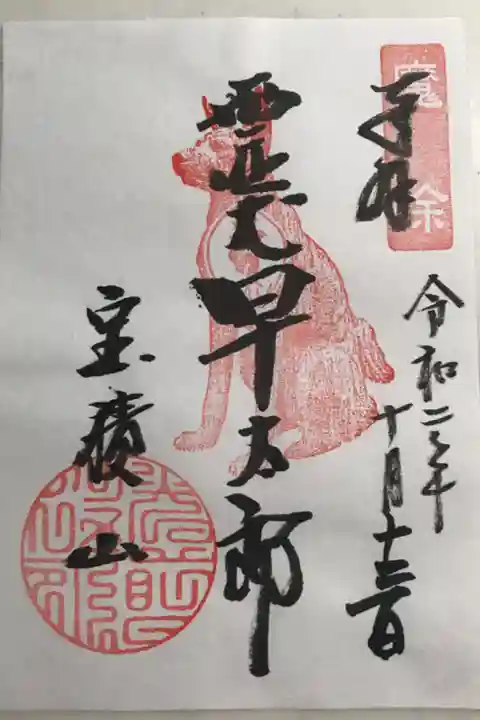 魔除
奉拝
令和二年
十月十三日
霊犬早太郎
宝積山